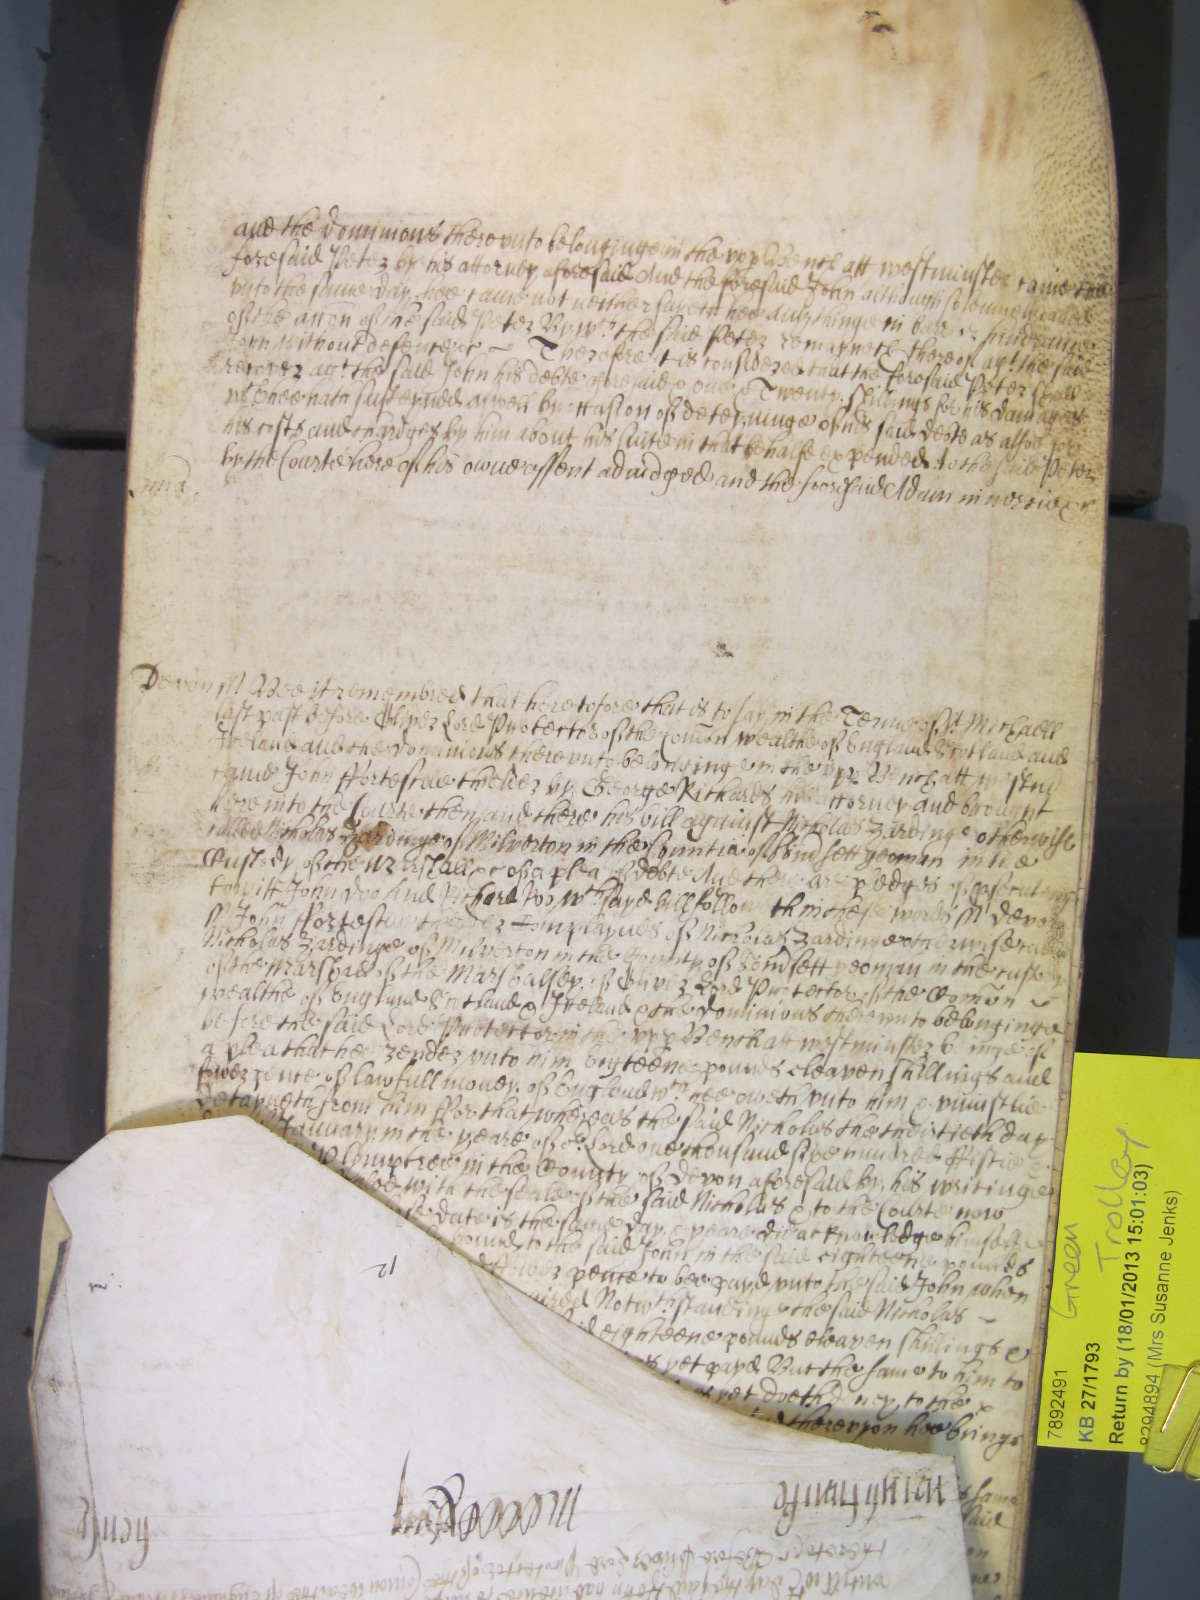 and the dominions therevnto belonginge in the vpp Bench att westminster came the
foresaid Peter by his attorney aforesaid And the foresaid John although solemnely called
vnto the same day hee came not neither sayeth hee anythinge in barr or hindrance
of the accon of the said Peter By wch the said Peter remayneth thereof agt the said
John without defence &c Therefore it is considered that the foresaid Peter shall
recover agt the said John his debte aforesaid & one & Twenty shillings for his damages
wch hee hath susteyned aswell by occasion of deteyninge of his said debte as alsoe for
his costs and chardges by him about his suite in that behalfe expended to the said Peter
by the Courte here of his owne assent adiudged and the foresaid Adam in mercie &c
mia
Devon ss Bee it remembred that heretofore that is to say in the Terme of St Michaell
last past Before Oliver Lord Protector of the Comon wealthe of England Scotland and
Ireland and the dominions therevnto belonginge in the vpp Bench att westmr
came John ffortescue thelder by George Richards his attorney and brought
here into the Courte then and there his bill against Nicholas Hardinge otherwise
called Nicholas Hardinge of Milverton in the Countie of Somsett yeoman in the
Custody of the Marshall &c of a plea of debte And there are pledges of prosecuteng
to witt John Doo and Richard Roo wch sayd bill followeth in these words ss Devon
ss John ffortescue thelder Complaynes of Nicholas Hardinge otherwise called
Nicholas Hardinge of Milverton in the County of Somsett yeoman in the custody
of the Marshall of the Marshalsey of Oliver Lord Protector of the Comon
wealthe of England Scotland & Ireland & the dominions therevnto belonginge
before the said Lord Protector in the vpp Bench att westminster beinge of
a plea that hee render vnto him eighteene pounds eleaven shillings and
fower pence of lawfull money of England wch hee oweth vnto him & vniustlie
detayneth from him ffor that whereas the said Nicholas the thirtieth day
January in the yeare of or Lord one thousand sixe hundred ffiftie &
Plymptree in the County of Devon aforesaid by his writinge
with the seale of the said Nicholas & to the Courte now
date is the same day & yeare did acknowledge himselfe
pounds to the said John in the said eighteene pounds
& fower pence to bee payd vnto the said John when
Notwthstandinge the said Nicholas
eighteene pounds eleaven shillings &
yet payd But the same to him to
yet doeth deney to the
and therevpon hee brings
same
said
12
westminster
henge
7892491 Green
KB 27/1793 Trolley
Return by (18/01/2013 15:01:03)
8294894 (Mrs Susanne Jenks)